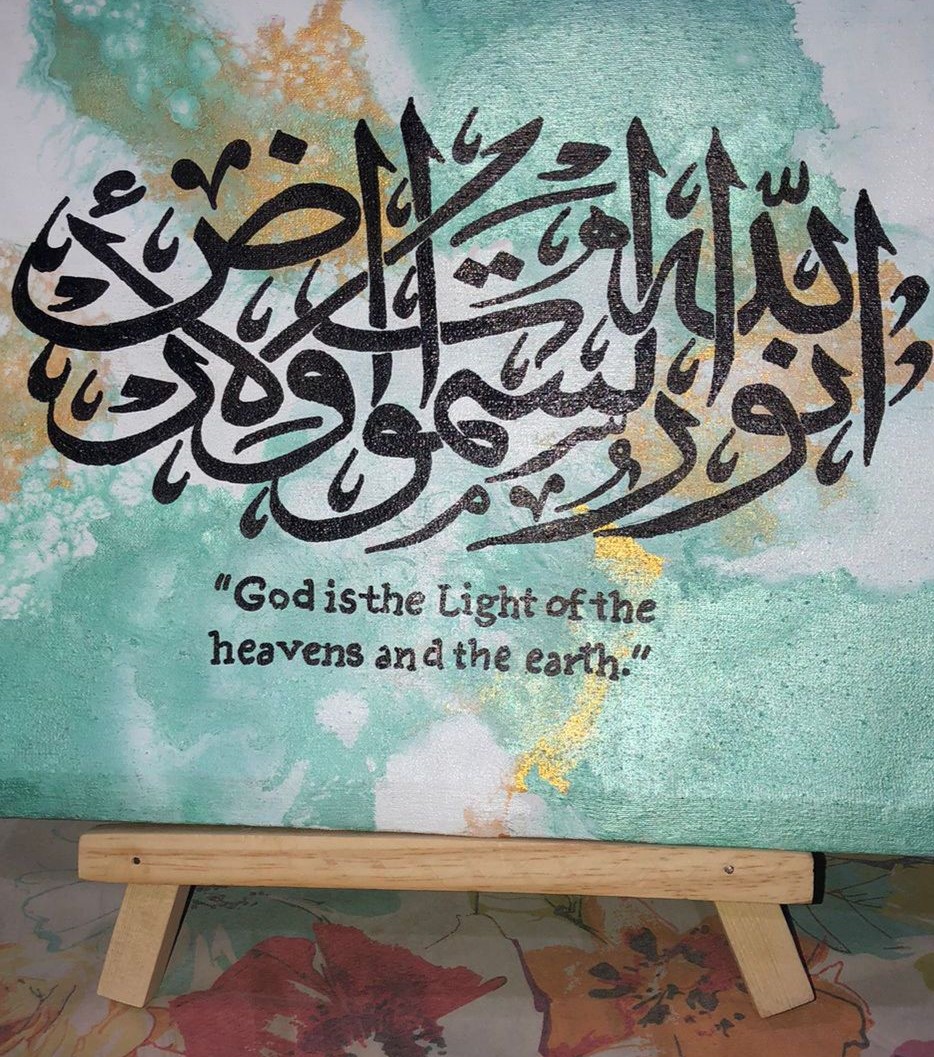 الله نور السموات والارض
"God is the Light of the
heavens and the earth."